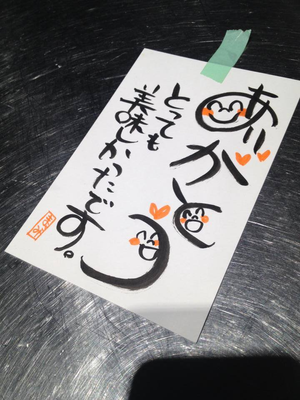 ありがとう
とっても
美味しかったです。